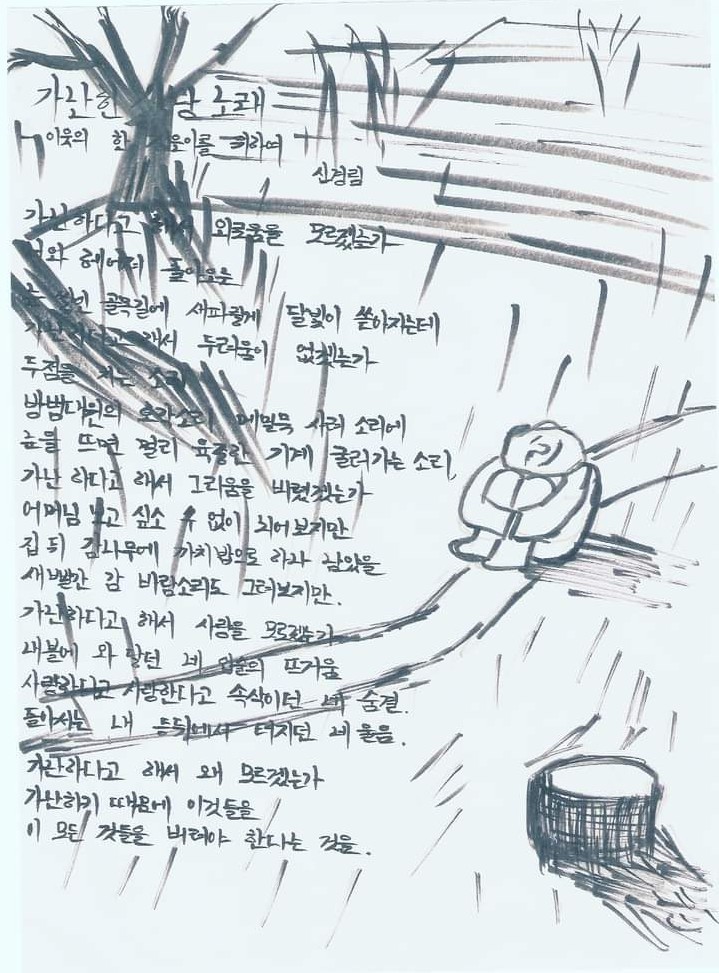 가난한 노래
이웃의 한 위하여
신경림
가난하다고 해서 외로움을 모르겠는가
돌아오는
눈 쌓인 골목길에 새파랗게 달빛이 쏟아지는데
가난하다고 해서 두려움이 없겠는가
두점을 치는 소리
방범대원의 호각소리 메밀묵 사려 소리에
눈을 뜨면 멀리 육중한 기계 굴러가는 소리.
가난 하다고 해서 그리움을 버렸겠는가
어머님 보고 싶소 수 없이 뇌어 보지만
집 뒤 감나무에 까치밥으로 하나 남았을
새빨간 감 바람소리도 그려보지만.
가난하다고 해서 사랑을 모르겠는가
내볼에 와 닿던 네 입술의 뜨거움
사랑한다고 사랑한다고 속삭이던 네 숨결.
돌아서는 내 등뒤에서 터지던 네 울음.
가난하다고 해서 왜 모르겠는가
가난하기 때문에 이것들을
이 모든 것들을 버려야 한다는 것을.